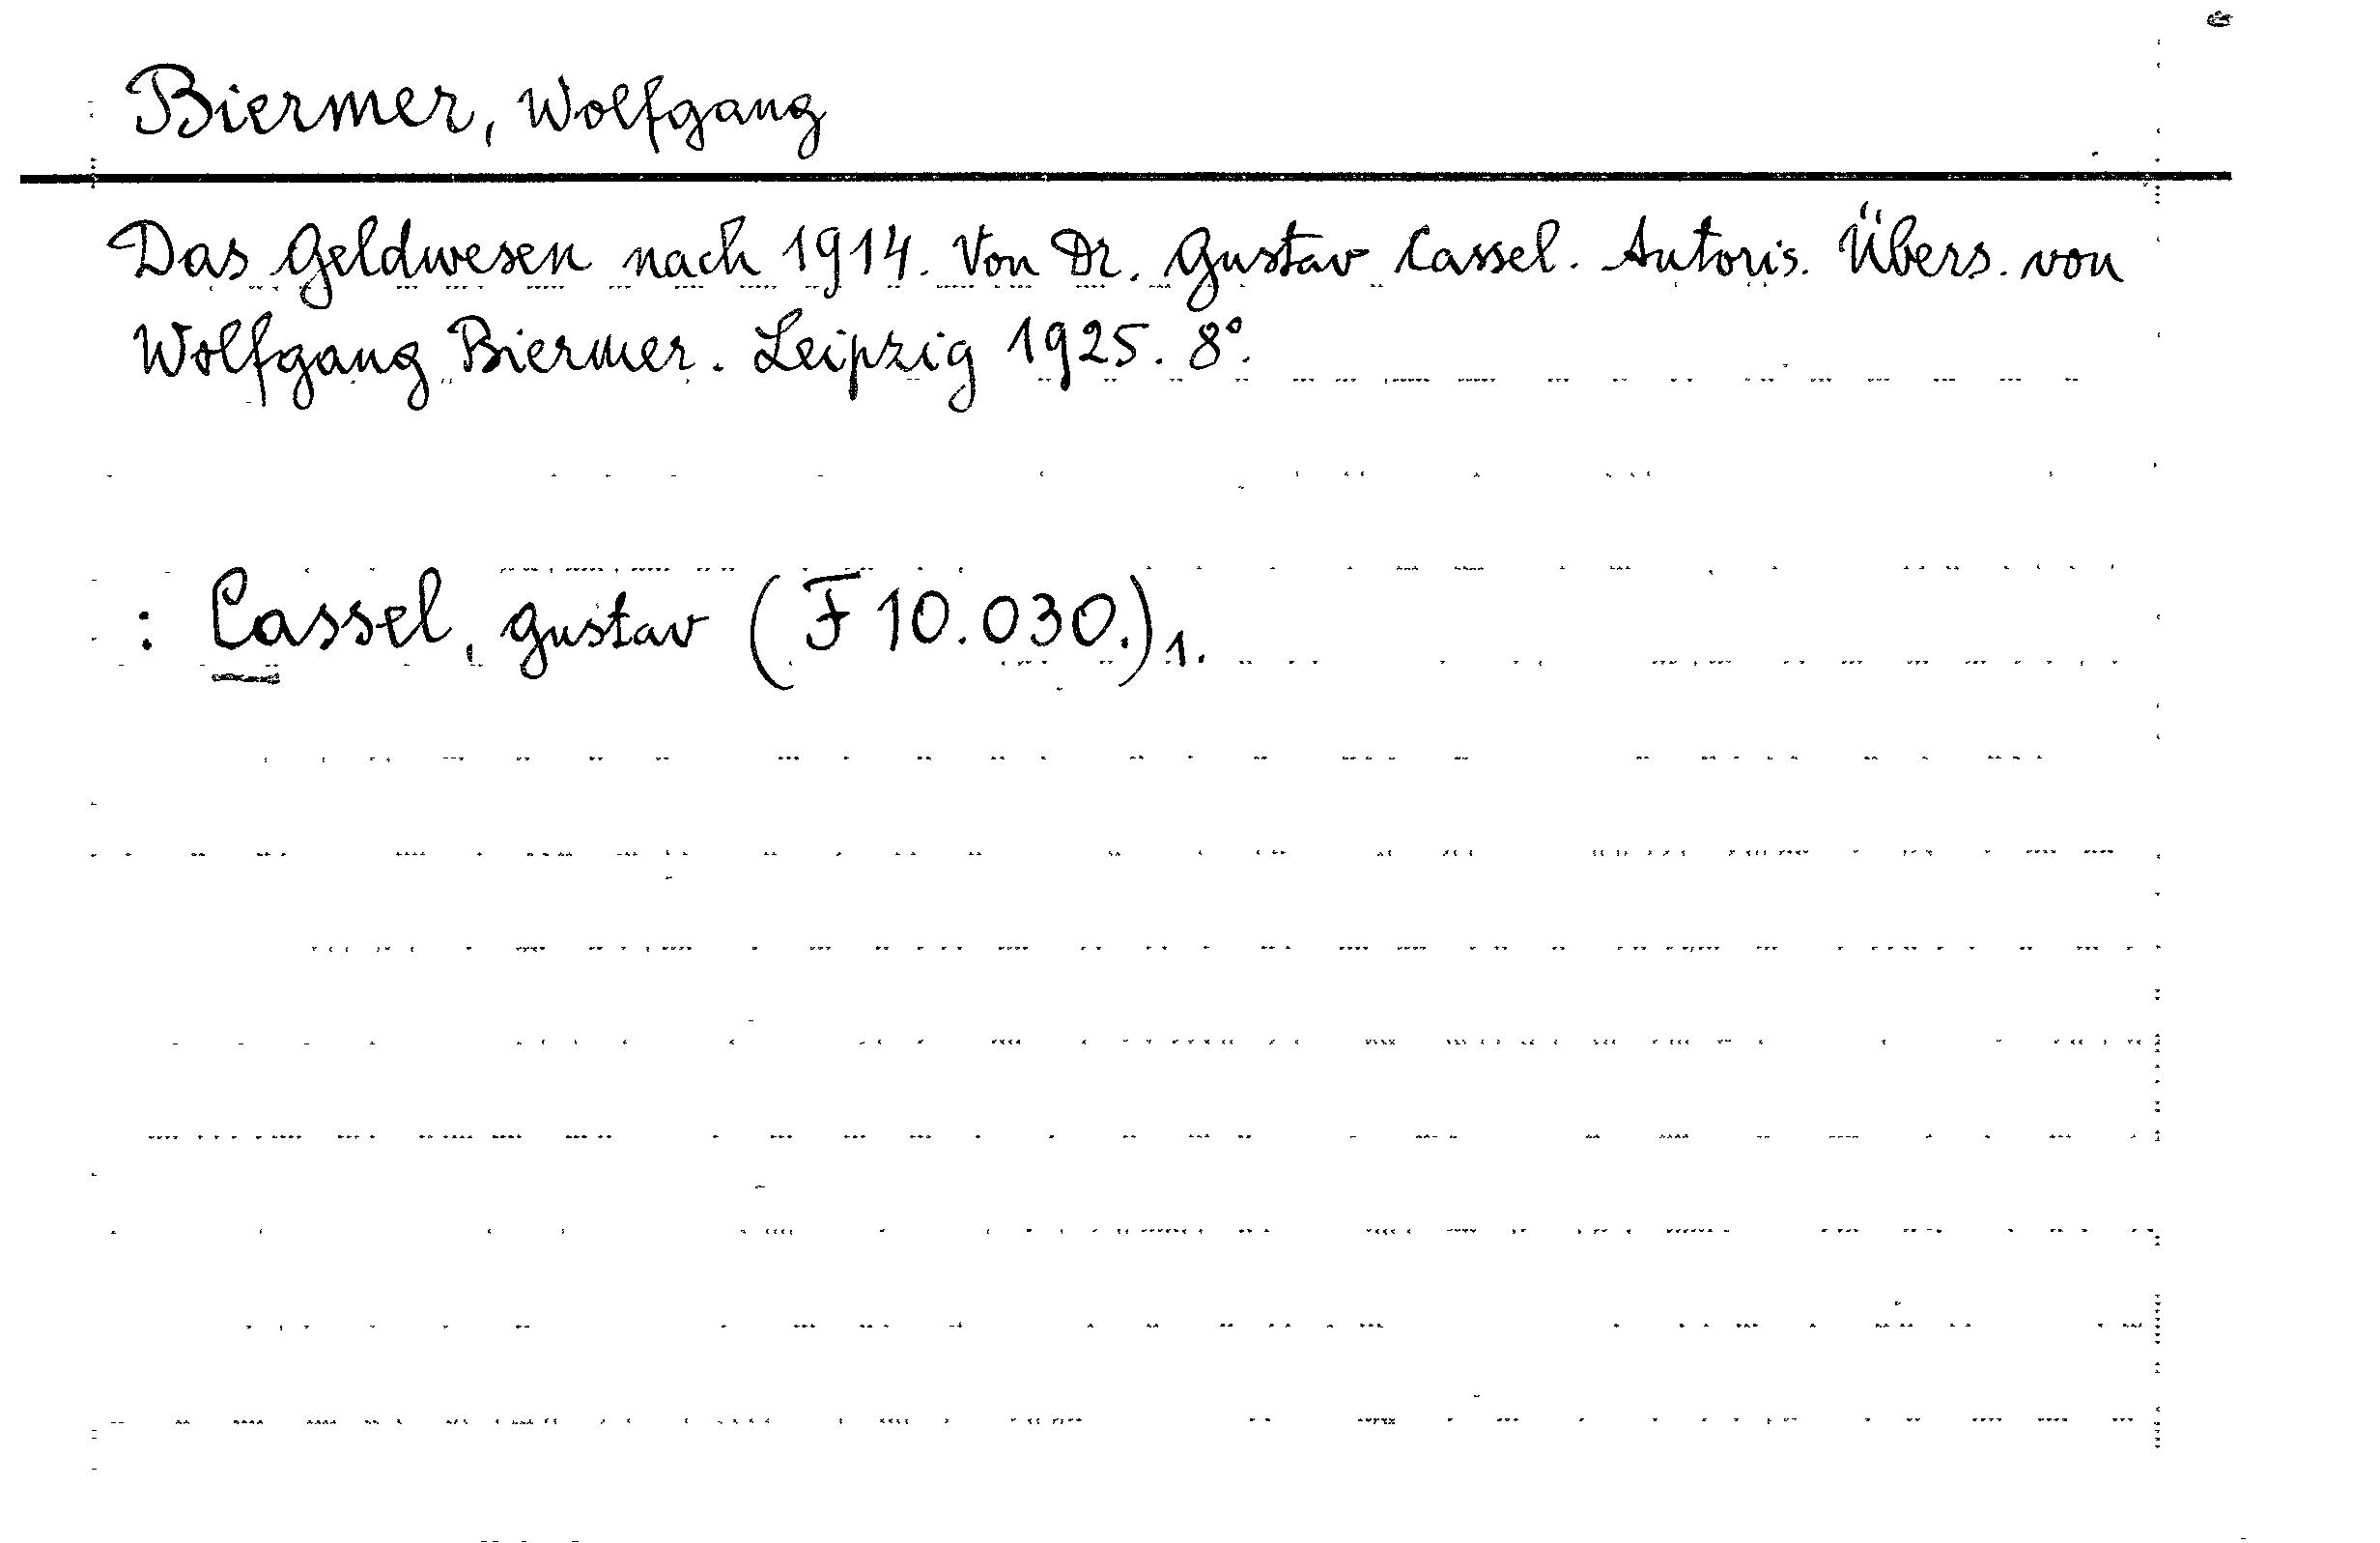 Biermer, Wolfgang
Das Geldwesen nach 1914. Von Dr. Gustav Cassel. Autoris. Übers. von
Wolfgang Biermer. Leipzig 1925. 8°.
: Cassel, Gustav (F 10.030.)1.